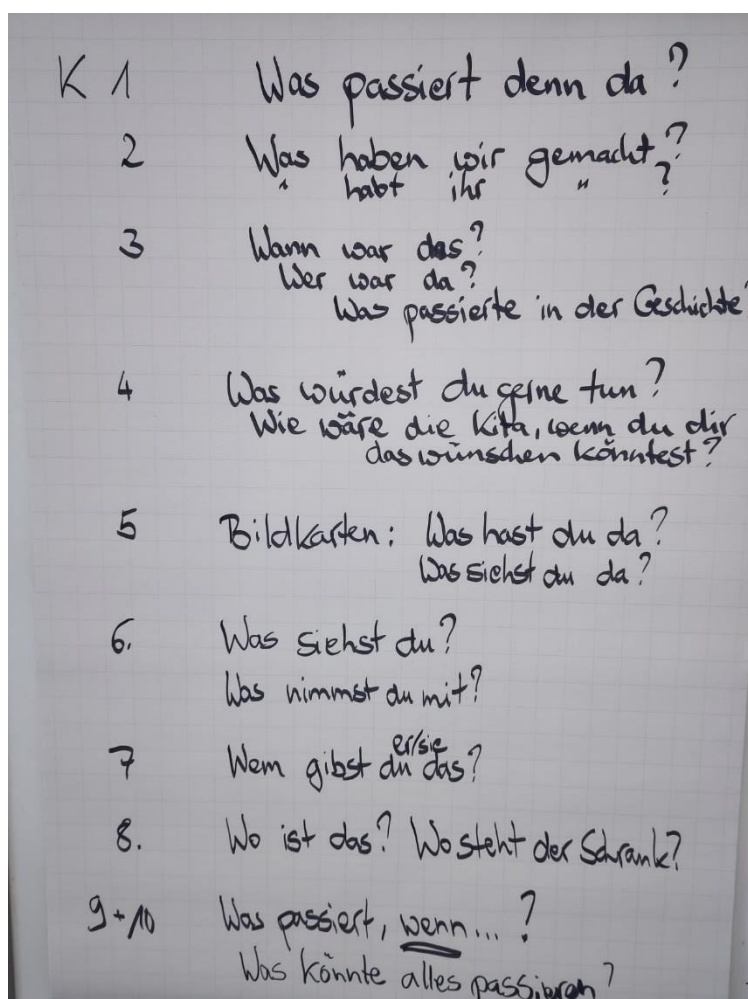 K 1 Was passiert denn da?
2 Was haben wir gemacht?
" habt ihr " ?
3 Wann war das?
Wer war da?
Was passierte in der Geschichte
4 Was würdest du gerne tun?
Wie wäre die Kita, wenn du dir
das wünschen könntest?
5 Bildkarten: Was hast du da?
Was siehst du da?
6. Was siehst du?
Was nimmst du mit?
er/sie
7 Wem gibst du das?
8. Wo ist das? Wo steht der Schrank?
9+10 Was passiert, wenn...?
Was könnte alles passieren?